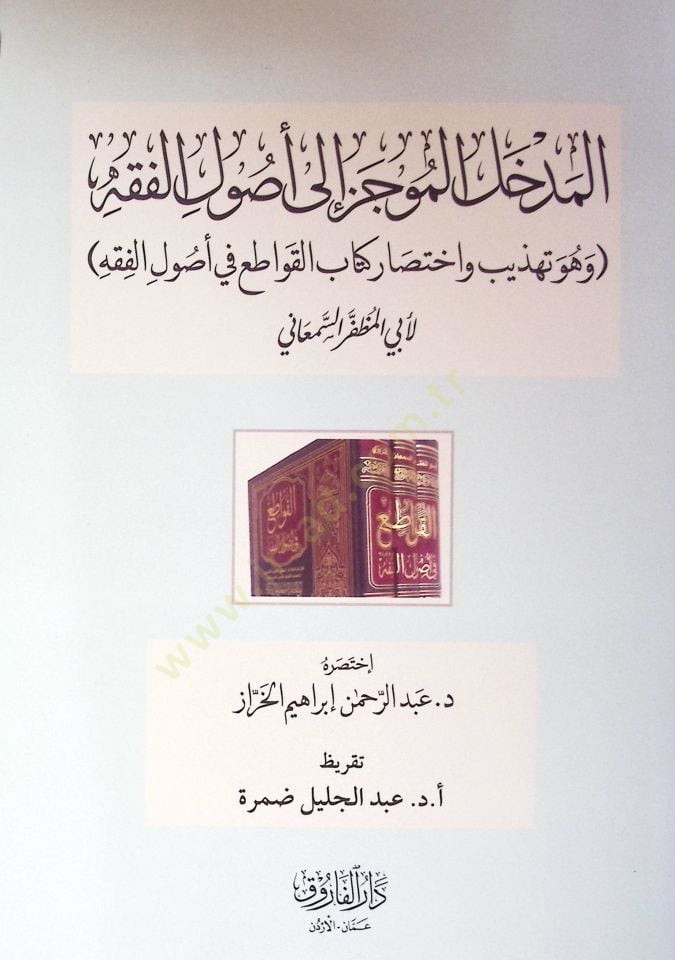 المَدْخَل المُوجَز إلى أصُولِ الفقهِ
(وَهُوَ تهذيب واختصَار كتاب القواطع في أصُولِ الفِقهِ)
لأبي المظفَّر السِّمعَاني
القواطع
في أصول الفقه
القواطع
في أصول الفقه
إختَصَرهُ
د. عَبد الرَّحمٰن إبراهيم الخَرَّاز
تقريظ
أ.د. عبد الجليل ضمرة
دَارُ الفَارُوق
عَمَّان - الأردُن